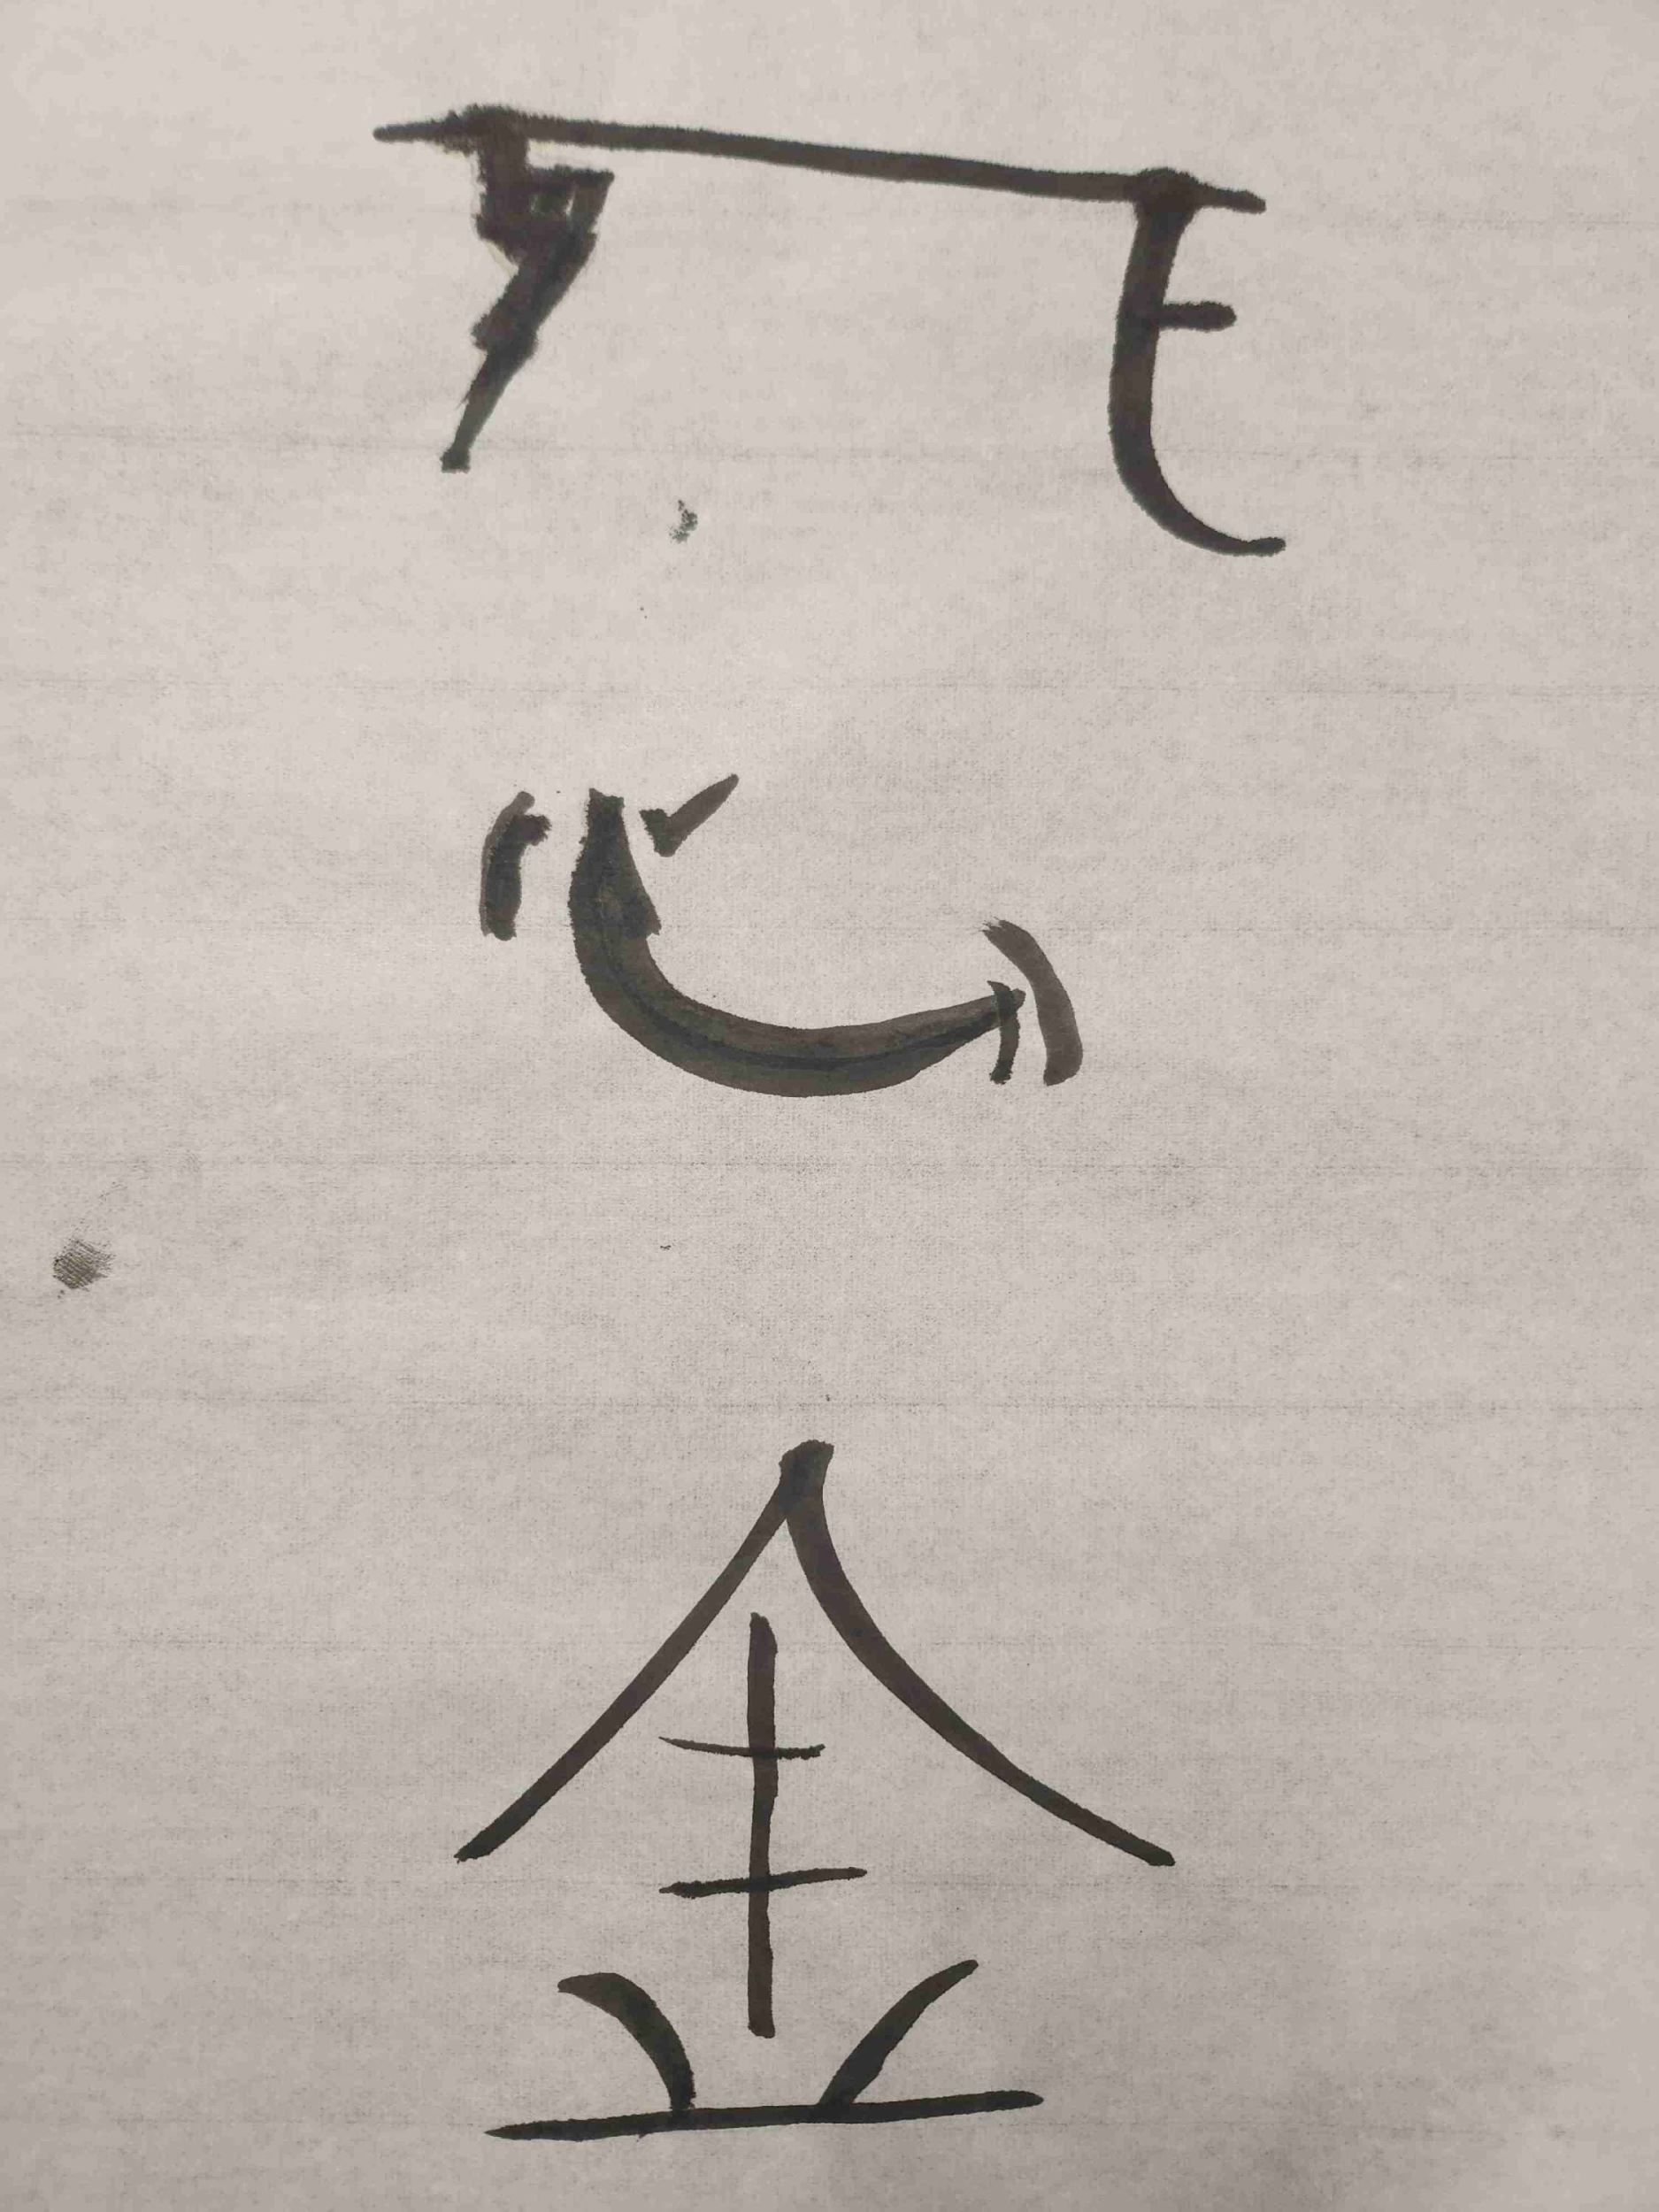 死心金